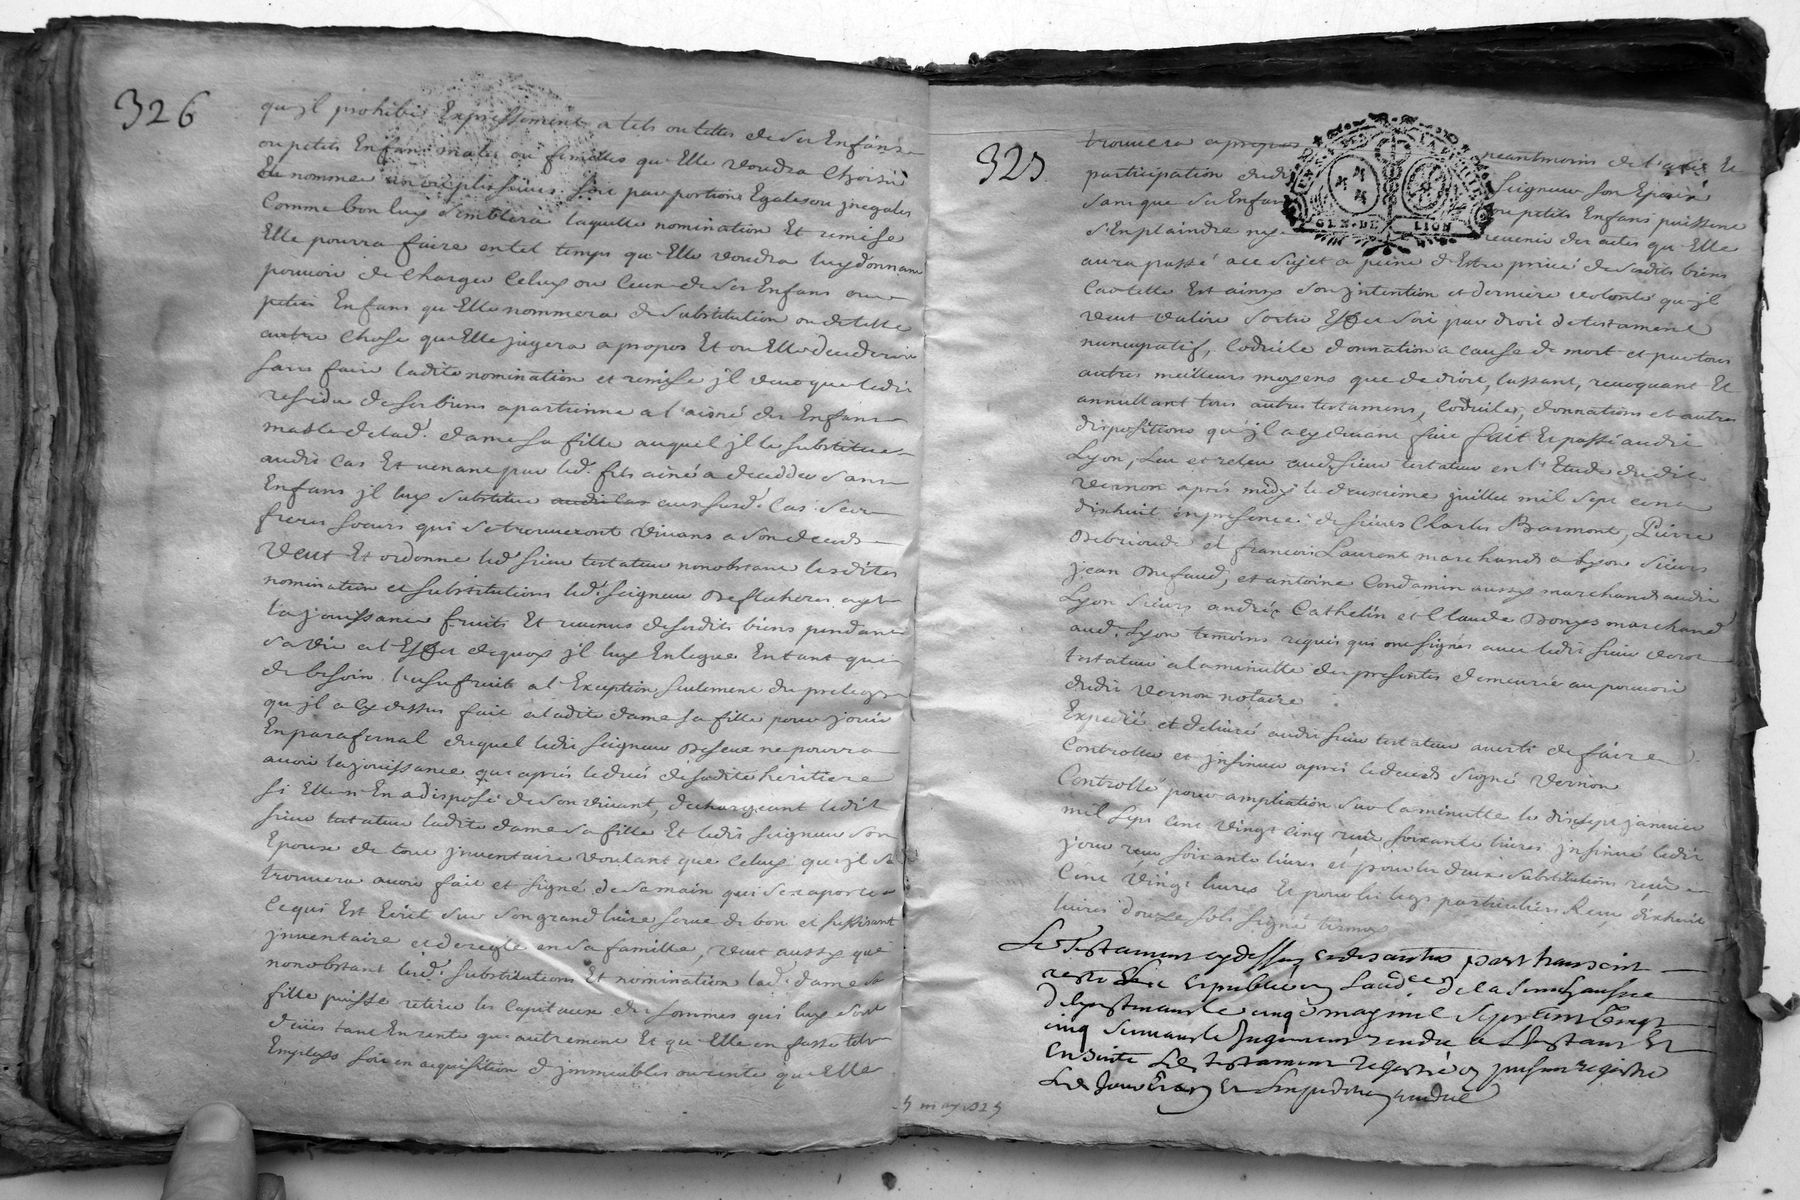 326
qu'jl prohibe Expressement a tels ou telles de ses Enfans
ou petits Enfans males ou femelles qu'Elle voudra choisir
Et nommer un ou plusieurs soit par portions Egales ou jnegales
Comme bon luy semblera laquelle nomination Et remise
Elle pourra faire en tel temps qu'Elle voudra luy donnant
pouvoir de charger Celuy ou Ceux de ses Enfans ou
petits Enfans qu'Elle nommera de substitution ou de telle
autre chose qu'Elle jugera a propos Et ou Elle decederoit
sans faire ladite nomination et remise jl veut que ledit
residu de ses biens apartienne a l'aisné des Enfans
masle de lad. dame sa fille auquel jl les substitue
audit cas Et venant par led. fils ainé a decedder sans
Enfans jl luy substitue audit cas aususd. Cas ses
freres soeurs qui se trouveront vivans a son deceds
veut Et ordonne led. sieur testateur nonobstant lesdites
nomination et substitutions led. seigneur Deflacheres ayt
la jouissance fruits Et revenus desdits biens pendant
sa vie a l'Effet de quoy jl luy En legue En tant que
de besoin l'usufruit a l'Exception seulement du prelegs
qu'jl a cy dessus fait a ladite dame sa fille pour jouir
En parafernal duquel ledit seigneur ne pourra
avoir la jouissance que aprés le decés de sadite heritiere
si Elle n'En a disposé de son vivant, dechargeant ledit
sieur testateur ladite dame sa fille Et ledit seigneur son
Epoux de tout jnventaire voulant que Celuy qu'jl se
trouvera avoir fait et signé de sa main qui se raporte a
Ce qui Est Ecrit sur son grand livre serve de bon et suffisant
jnventaire et de regle en sa famille, veut aussy que
nonobstant lesd. substitutions Et nomination lad. dame sa
fille puisse retirer les Capitaux des sommes qui luy sont
deües tant En rente qu'autrement Et qu'Elle en fasse tels
Employs soit en acquisition d'jmmeubles ou rente qu'Elle
325
trouvera a propos neantmoins de l'avis Et
participation dudit Seigneur son Epoux
sans que ses Enfans ou petits Enfans puissent
s'En plaindre ny revenir des actes qu'Elle
aura passé a ce sujet a peine d'Estre privé desdits biens
Car telle Est ainsy son jntention et derniere volonté qu'jl
veut valoir sortir Effet soit par droit de testament
nuncupatif, Codicile donnation a cause de mort et par tous
autres meilleurs moyens que de droit, cassant, revoquant Et
annullant tous autres testamens, Codiciles, donnations et autres
dispositions qu'jl a cy devant faire fait Et passé audit
Lyon, Leu et releu audit sieur testateur en l'Etude dudit
Vernon aprés midy le deuxieme juillet mil sept cent
dixhuit en presence de sieurs Charles Barmont, Pierre
Debrioude et françois Laurent marchands a Lyon sieurs
jean Defaud, et antoine Condamin aussy marchands audit
Lyon sieurs andré Cathelin et Claude Donys marchand
aud. Lyon temoins requis qui ont signés avec ledit sieur
testateur a la minutte des presentes demeurée au pouvoir
dudit Vernon notaire
Expedié et delivré audit sieur testateur averti de faire
Controller et jnsinuer aprés le deceds signé Vernon
Controllé pour ampliation sur la minutte le dixsept janvier
mil sept cent vingt cinq reçu soixante livres jnsinué ledit
jour reçu soixante livres et pour les deux substitutions reçu
Cent vingt livres Et pour les legs particuliers Reçu dixhuit
livres douze sols signé
Le Testament cy dessus et des autres part transcrit
a esté leu et publié en Laud.ce de la Senechaussée
de Lyon suivant le cinq may mil sept cent vingt
cinq suivant le Jugement rendu a l'Instant Et
ensuite led. testament registré en present registre
Led. Jour & an Et expedition rendue
5 may 1725